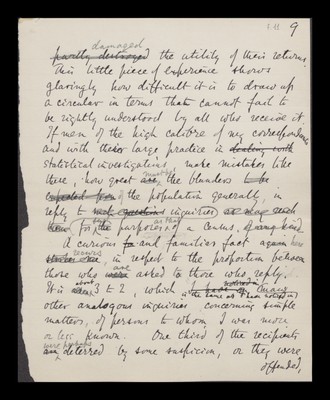 9
damaged
partly destroyed the utility of their returns.
This little piece of experience shows
glaringly how difficult it is to draw up
a circular in terms that cannot fail to
be rightly understood by all who receive it.
If men of the high calibre of my correspondents
and with their large practice in dealing with
statistical investigations, make mistakes like
there, how great must be
are the blunders to be
expected from of the population generally, in
reply to such questions inquiries
for the purposes of a Census,
A curious and familiar fact again
recurs
in respect to the proportion between
those who were asked to those who reply.
It is about 3 to 2, which I have noticed
is the same as I have noticed in
other analogous inquiries concerning simple
matters, of persons to whom I was more
or less known. One third of the recipients
were perhaps
are deterred by some suspicion, or they were
offended,